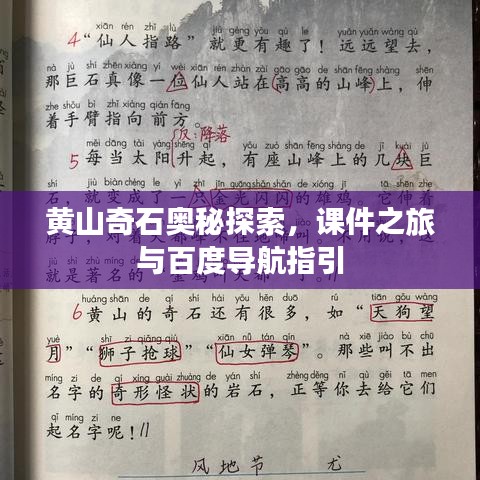 xiān rén zhǐ lù jiù gèng yǒu qù le yuǎn yuǎn wàng qù
4 “仙人指路”就更有趣了！远远望去，
nà jù shí zhēn xiàng yí wèi xiān rén zhàn zài gāo gāo de shān fēng shàng shēn
那巨石真像一位仙人站在高高的山峰上，伸
zhe shǒu bì zhǐ xiàng qián fāng
着手臂指向前方。
反：降落
měi dāng tài yáng shēng qǐ yǒu zuò shān fēng shàng de jǐ kuài jù
5 每当太阳升起，有座山峰上的几块巨
石，就变成了一只金光闪闪的雄鸡。它伸着
黄山奇石奥秘探索，课件之旅
与百度导航指引
就是著名的“金鸡叫天都”了。
huáng shān de qí shí hái yǒu hěn duō rú tiān gǒu wàng
6 黄山的奇石还有很多，如“天狗望
yuè shī zi qiǎng qiú xiān nǚ tán qín nà xiē jiào bù chū
月”“狮子抢球”“仙女弹琴”。那些叫不出
míng zi de qí xíng guài zhuàng de yán shí zhèng děng nǐ qù gěi tā men
名字的奇形怪状的岩石，正等你去给它们
qǐ míng zi ne
起名字呢！//
风地节 尤